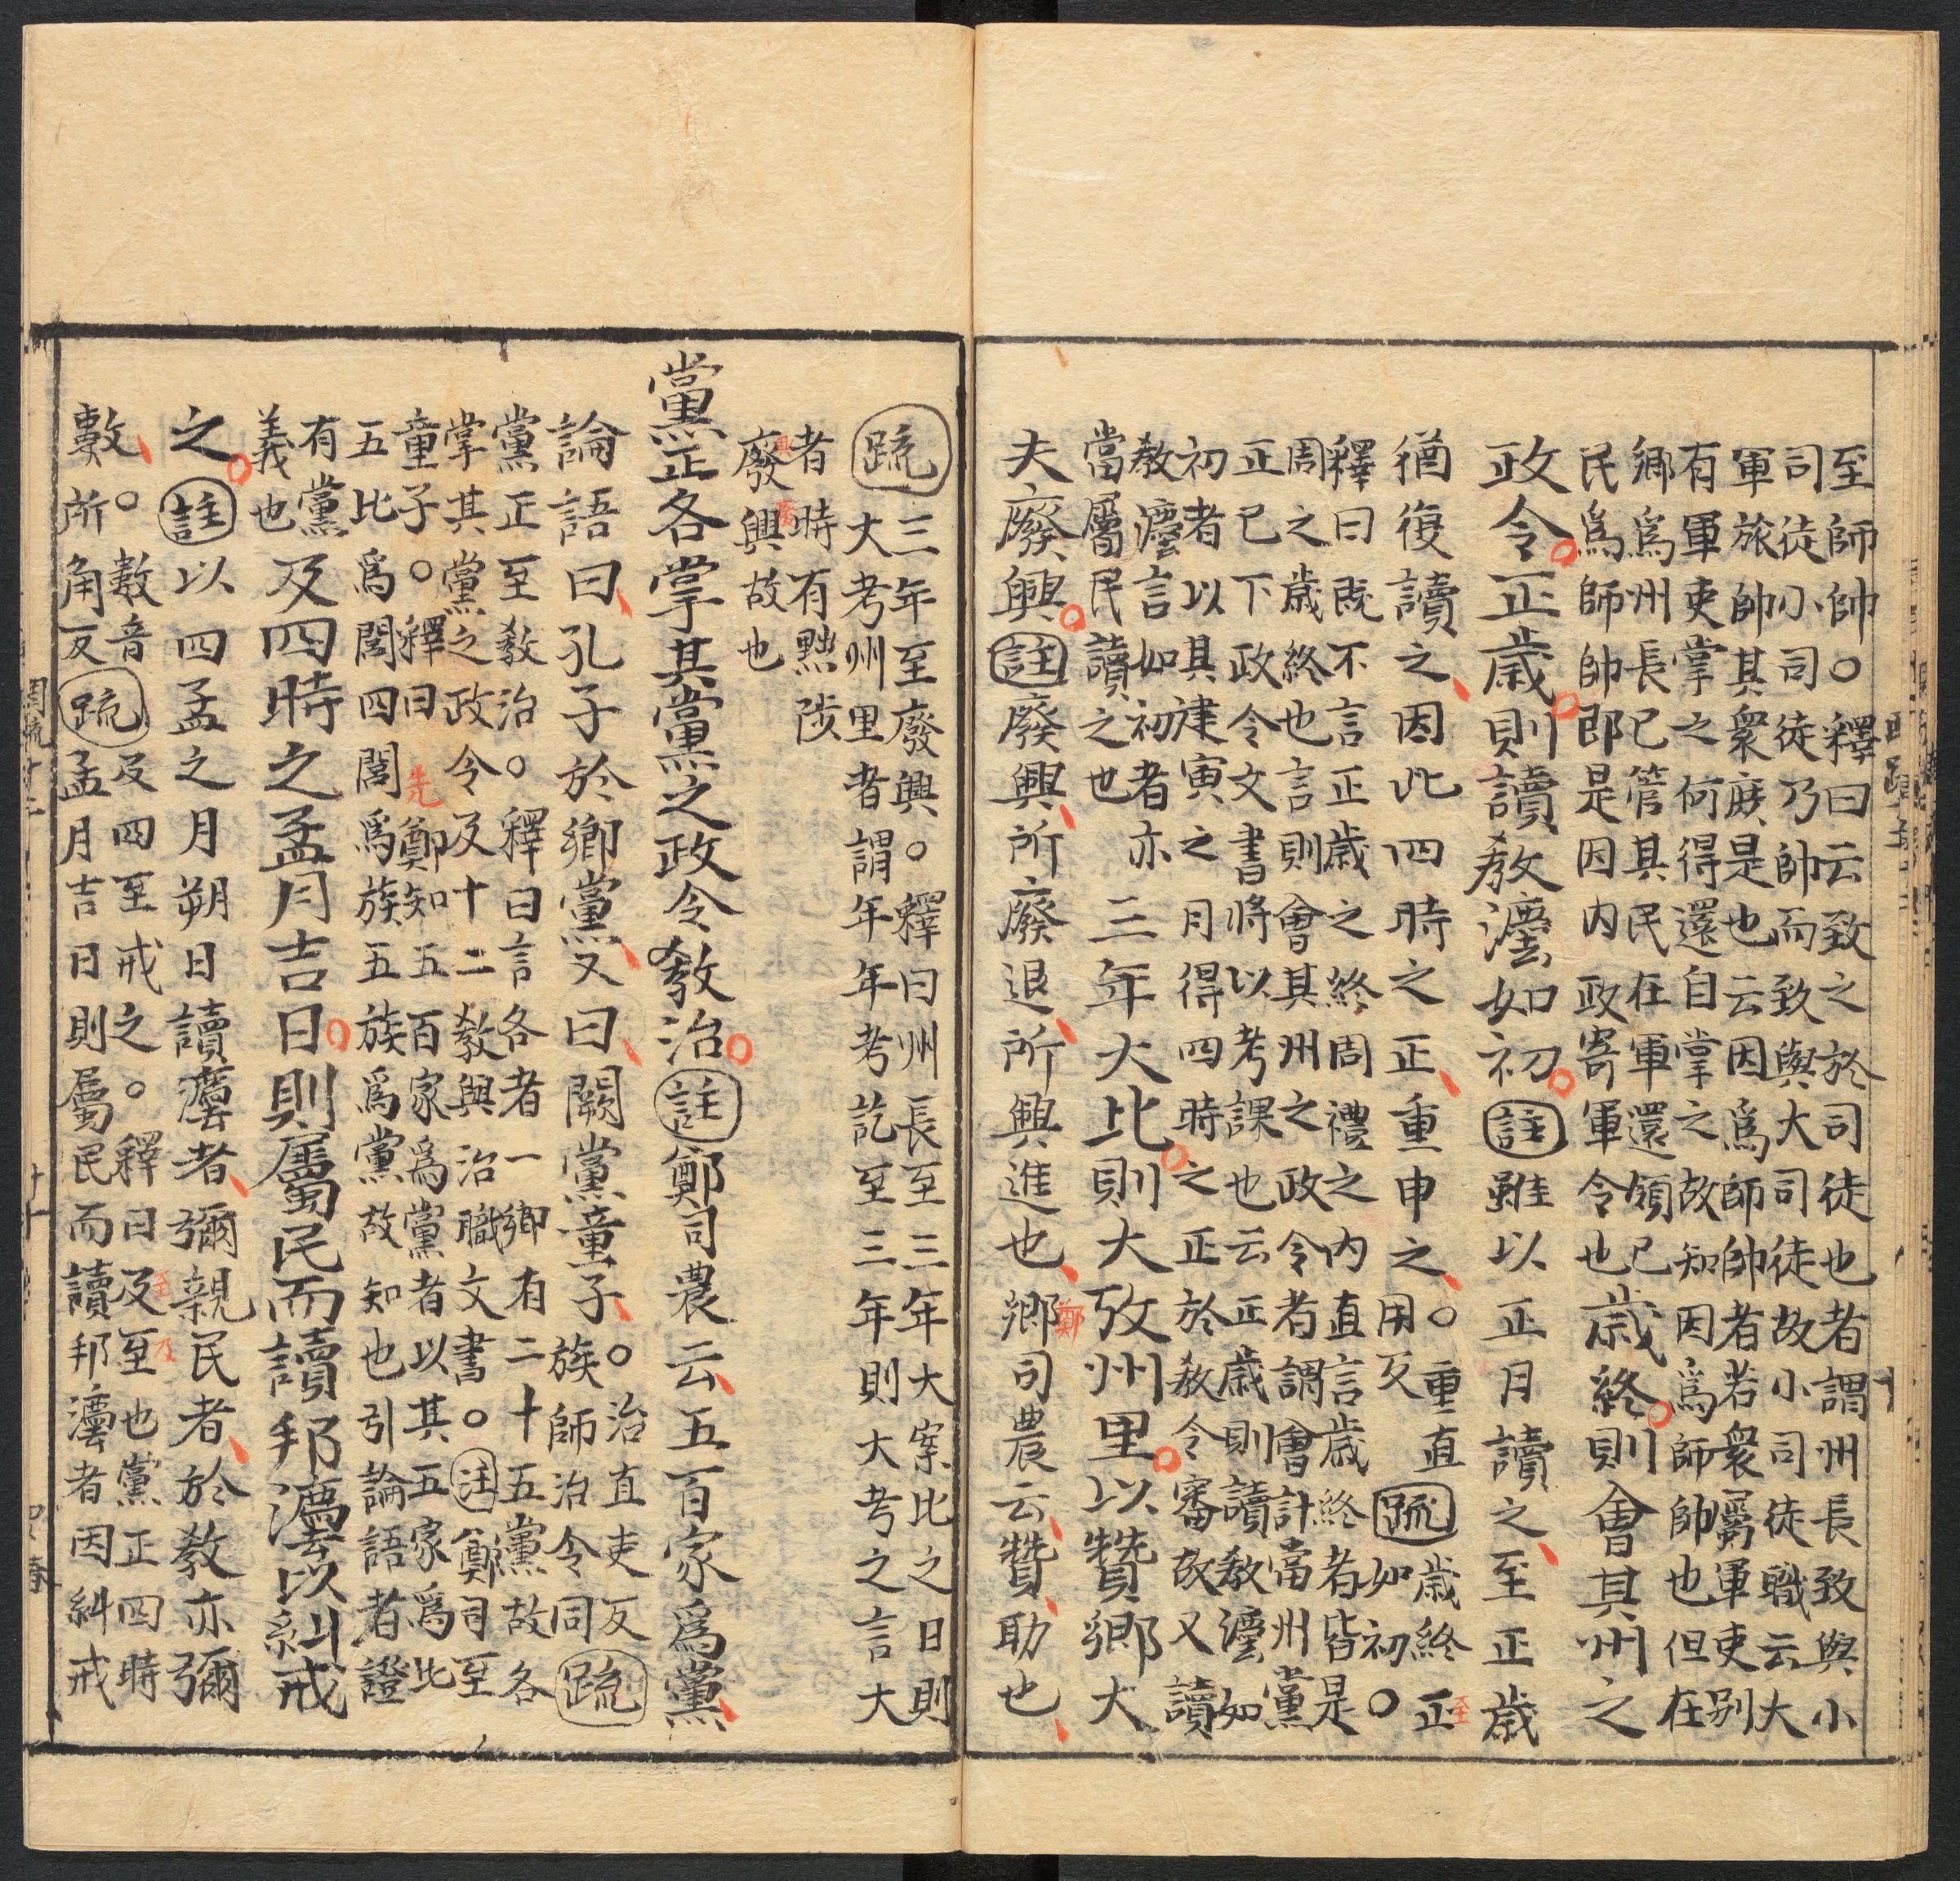 至師帥。釋曰云致之於司徒也者謂州長致與小
司徒小司徒乃帥而致與大司徒故小司徒職云大
軍旅帥其衆庶是也云因爲師帥者若衆屬軍吏别
有軍吏掌之何得還自掌之故知因爲師帥也但在
鄉爲州長已管其民在軍還領已
民爲師帥即是因内政寄軍令也
歲終則會其州之
政令正歲則讀教灋如初註雖以正月讀之至正歲
猶復讀之因此四時之正重申之。重直
用反
疏歲終正至
如初。
釋曰既不言正歲之終周禮之内直言歲終者皆是
周之歲終也言則會其州之政令者謂會計當州黨
正已下政令文書將以考課也云正歲則讀教灋如
初者以其建寅之月得四時之正於教令審故又讀
教灋言如初者亦
當屬民讀之也
三年大比則大攷州里以贊鄉大
夫廢興註廢興所廢退所興進也鄉司農云贊助也
鄭
疏三年至廢興。釋曰州長至三年大案比之日則
大考州里者謂年年考訖至三年則大考之言大
者時有黜陟
廢興故也
興廢
黨正各掌其黨之政令教治註鄭司農云五百家爲黨
論語曰孔子於鄉黨又曰闕黨童子。治直吏反
族師治令同
疏
黨正至教治。釋曰言各者一鄉有二十五黨故各
掌其黨之政令及十二教與治職文書。注鄭司至
童子。釋曰先鄭知五百家爲黨者以其五家爲比
五比爲閭四閭爲族五族爲黨故知也引論語者證
有黨
義也
及四時之孟月吉日則屬民而讀邦灋以糾戒
之註以四孟之月朔日讀灋者彌親民者於教亦彌
數。數音
所角反
疏及四至戒之。釋曰及至也黨正四時
至及
孟月吉日則屬民而讀邦灋者因糾戒